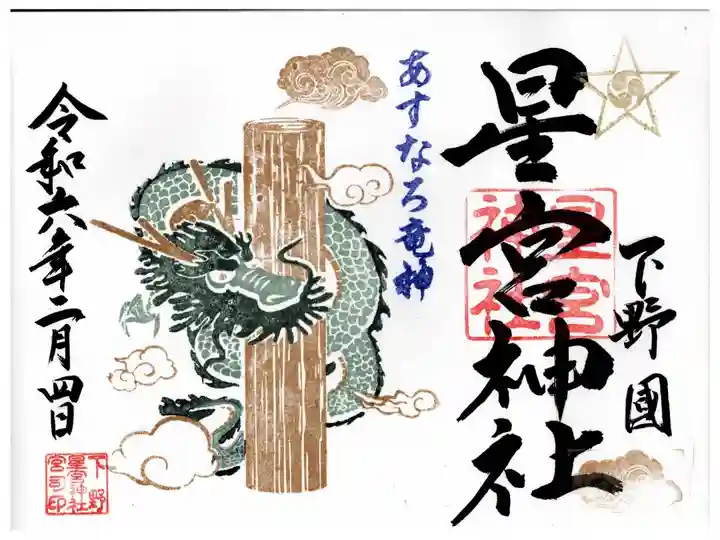 下野國
星宮神社
星宮神社
あすなろ竜神
令和六年二月四日
下野
星宮神社
宮司印